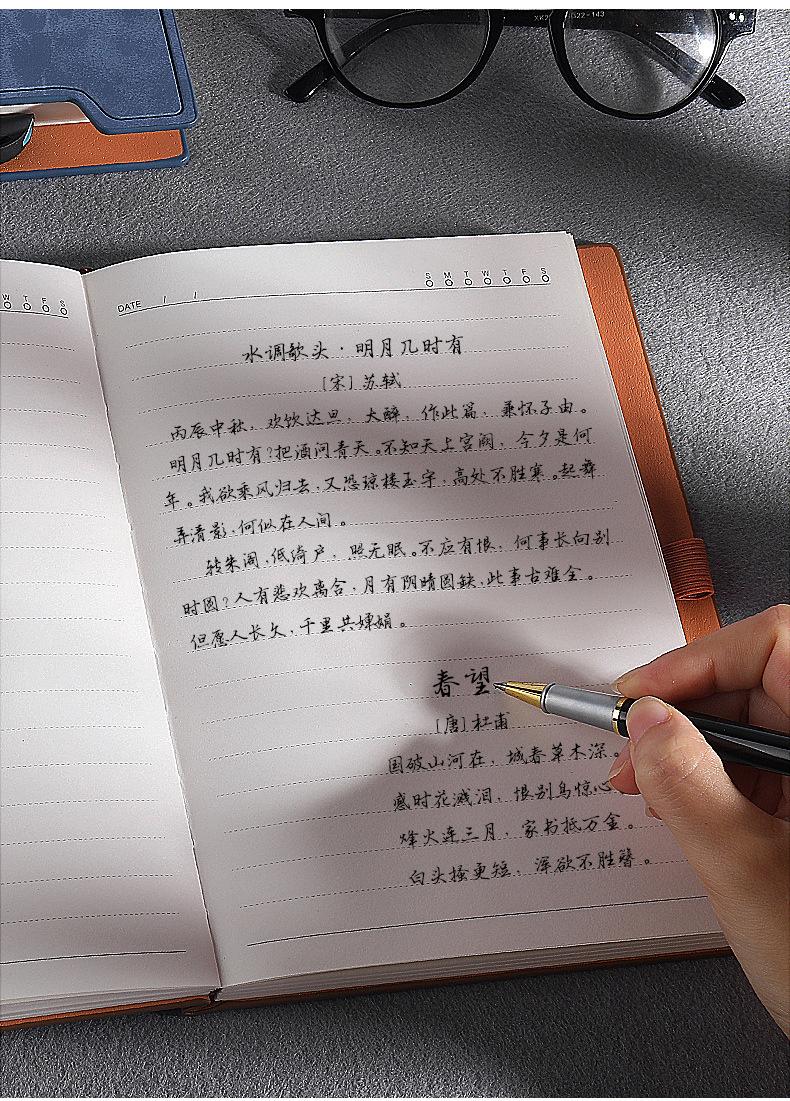 XK2 G22-143
W T F S
DATE / /
S M T W T F S
水调歌头·明月几时有
[宋]苏轼
丙辰中秋，欢饮达旦，大醉，作此篇，兼怀子由。
明月几时有?把酒问青天。不知天上宫阙，今夕是何
年。我欲乘风归去，又恐琼楼玉宇，高处不胜寒。起舞
弄清影，何似在人间。
转朱阁，低绮户，照无眠。不应有恨，何事长向别
时圆?人有悲欢离合，月有阴晴圆缺，此事古难全。
但愿人长久，千里共婵娟。
春望
[唐]杜甫
国破山河在，城春草木深。
感时花溅泪，恨别鸟惊心
烽火连三月，家书抵万金。
白头搔更短，浑欲不胜簪。